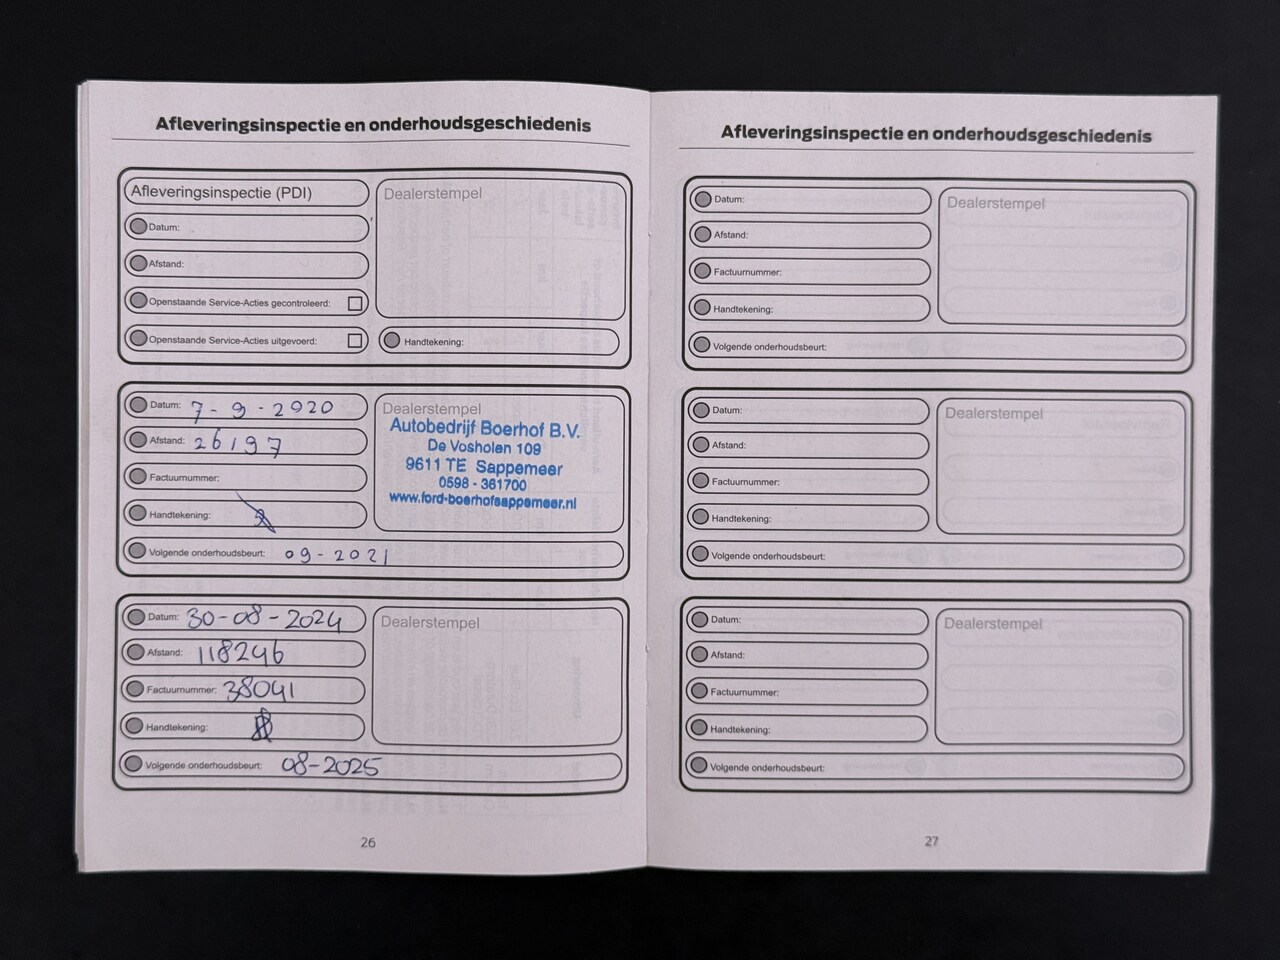 Afleveringsinspectie en onderhoudsgeschiedenis
Afleveringsinspectie (PDI)
Dealerstempel
Datum:
Afstand:
Openstaande Service-Acties gecontroleerd:
Openstaande Service-Acties uitgevoerd:
Handtekening:
Datum: 7-9-2020
Afstand: 26197
Factuurnummer:
Handtekening:
Volgende onderhoudsbeurt: 09-2021
Dealerstempel
Autobedrijf Boerhof B.V.
De Vosholen 109
9611 TE Sappemeer
0598 - 361700
www.ford-boerhofsappemeer.nl
Datum: 30-08-2024
Afstand: 118246
Factuurnummer: 38041
Handtekening:
Volgende onderhoudsbeurt: 08-2025
Dealerstempel
26
Afleveringsinspectie en onderhoudsgeschiedenis
Datum:
Afstand:
Factuurnummer:
Handtekening:
Volgende onderhoudsbeurt:
Dealerstempel
Datum:
Afstand:
Factuurnummer:
Handtekening:
Volgende onderhoudsbeurt:
Dealerstempel
Datum:
Afstand:
Factuurnummer:
Handtekening:
Volgende onderhoudsbeurt:
Dealerstempel
27